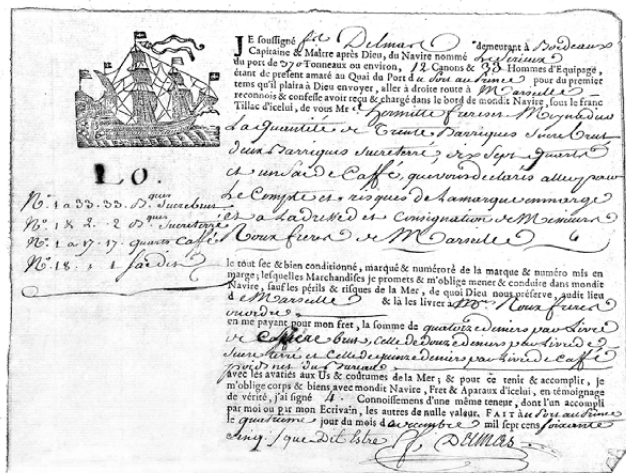 JE soussigné Delmas demeurant à Bordeaux
Capitaine & Maître après Dieu, du Navire nommé Le Sérieux
du port de 370 Tonneaux ou environ, 12 Canons & 38 Hommes d'Equipage,
étant de présent amaré au Quai du Port du Port au Prince pour du premier
tems qu'il plaira à Dieu envoyer, aller à droite route à Marseille
reconnois & confesse avoir reçu & chargé dans le bord de mondit Navire, sous le franc
Tillac d'icelui, de vous Mrs
La Quantité de Trente Barriques Sucre Brut
deux Barriques Sucre terré, dix Sept Quarts
et un Sac de Caffé, que vous declarés aller pour
Le Compte et risques de La marque en marge
et a L'adresse et Consignation de Messieurs
Roux freres de Marseille
LO.
Nº. 1 a 33. 33. Bques Sucre brut
Nº. 1 & 2. 2 Bques Sucre terré
Nº. 1 a 17. 17. Quarts Caffé
Nº. 18. 1
le tout sec & bien conditionné, marqué & numéroté de la marque & numéro mis en
marge; lesquelles Marchandises je promets & m'oblige mener & conduire dans mondit
Navire, sauf les périls & risques de la Mer, de quoi Dieu nous préserve, audit lieu
de Marseille & là les livrer à Mrs. Roux freres
ou ordre
en me payant pour mon fret, la somme de quatorze deniers par Livre
de Sucre brut, celle de douze deniers par Livre de
Sucre terré et Celle de quinze deniers par Livre de Caffé
poids net
avec les avariés aux Us & coûtumes de la Mer; & pour ce tenir & accomplir, je
m'oblige corps & biens avec mondit Navire, Fret & Aparaux d'icelui, en témoignage
de vérité, j'ai signé 4. Connoissemens d'une même teneur, dont l'un accompli
par moi ou par mon Ecrivain, les autres de nulle valeur. FAIT au Port au Prince
le quatrième jour du mois de Decembre mil sept cens soixante
Cinq / que Dit Estre Delmas